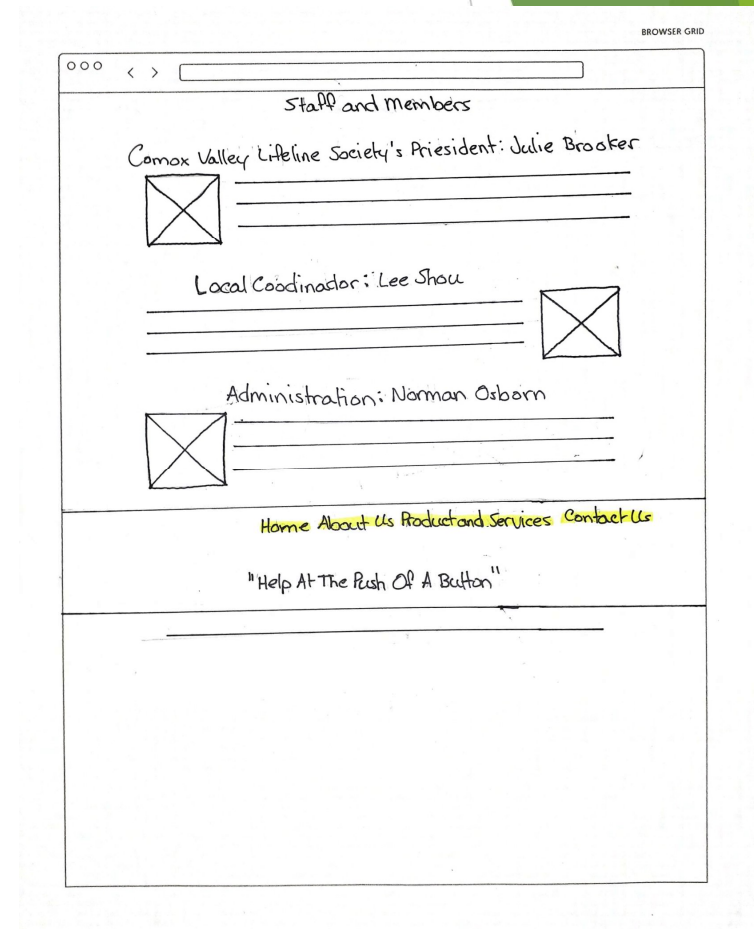 BROWSER GRID
Staff and members
Comox Valley Lifeline Society's Priesident: Julie Brooker
Local Coodinador: Lee Shou
Administration: Norman Osborn
Home About Us Product and Services Contact Us
"Help At The Push Of A Button"